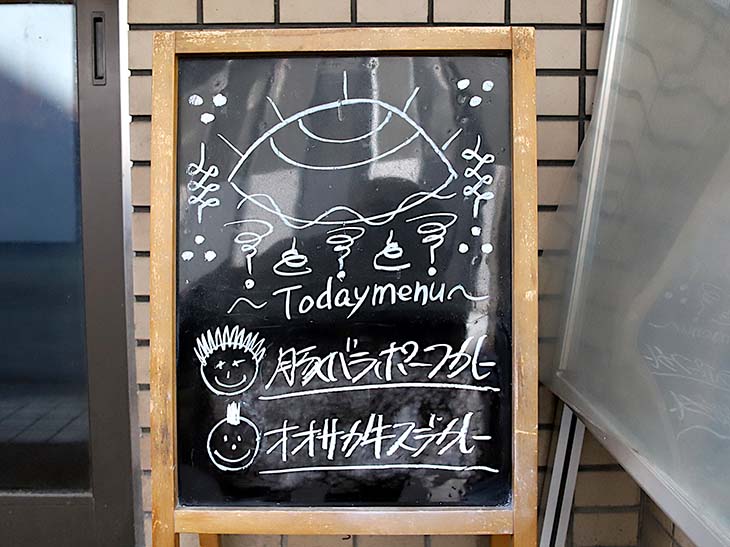 ～Todaymenu～
豚バラポークカレー
オオサカ牛スジカレー